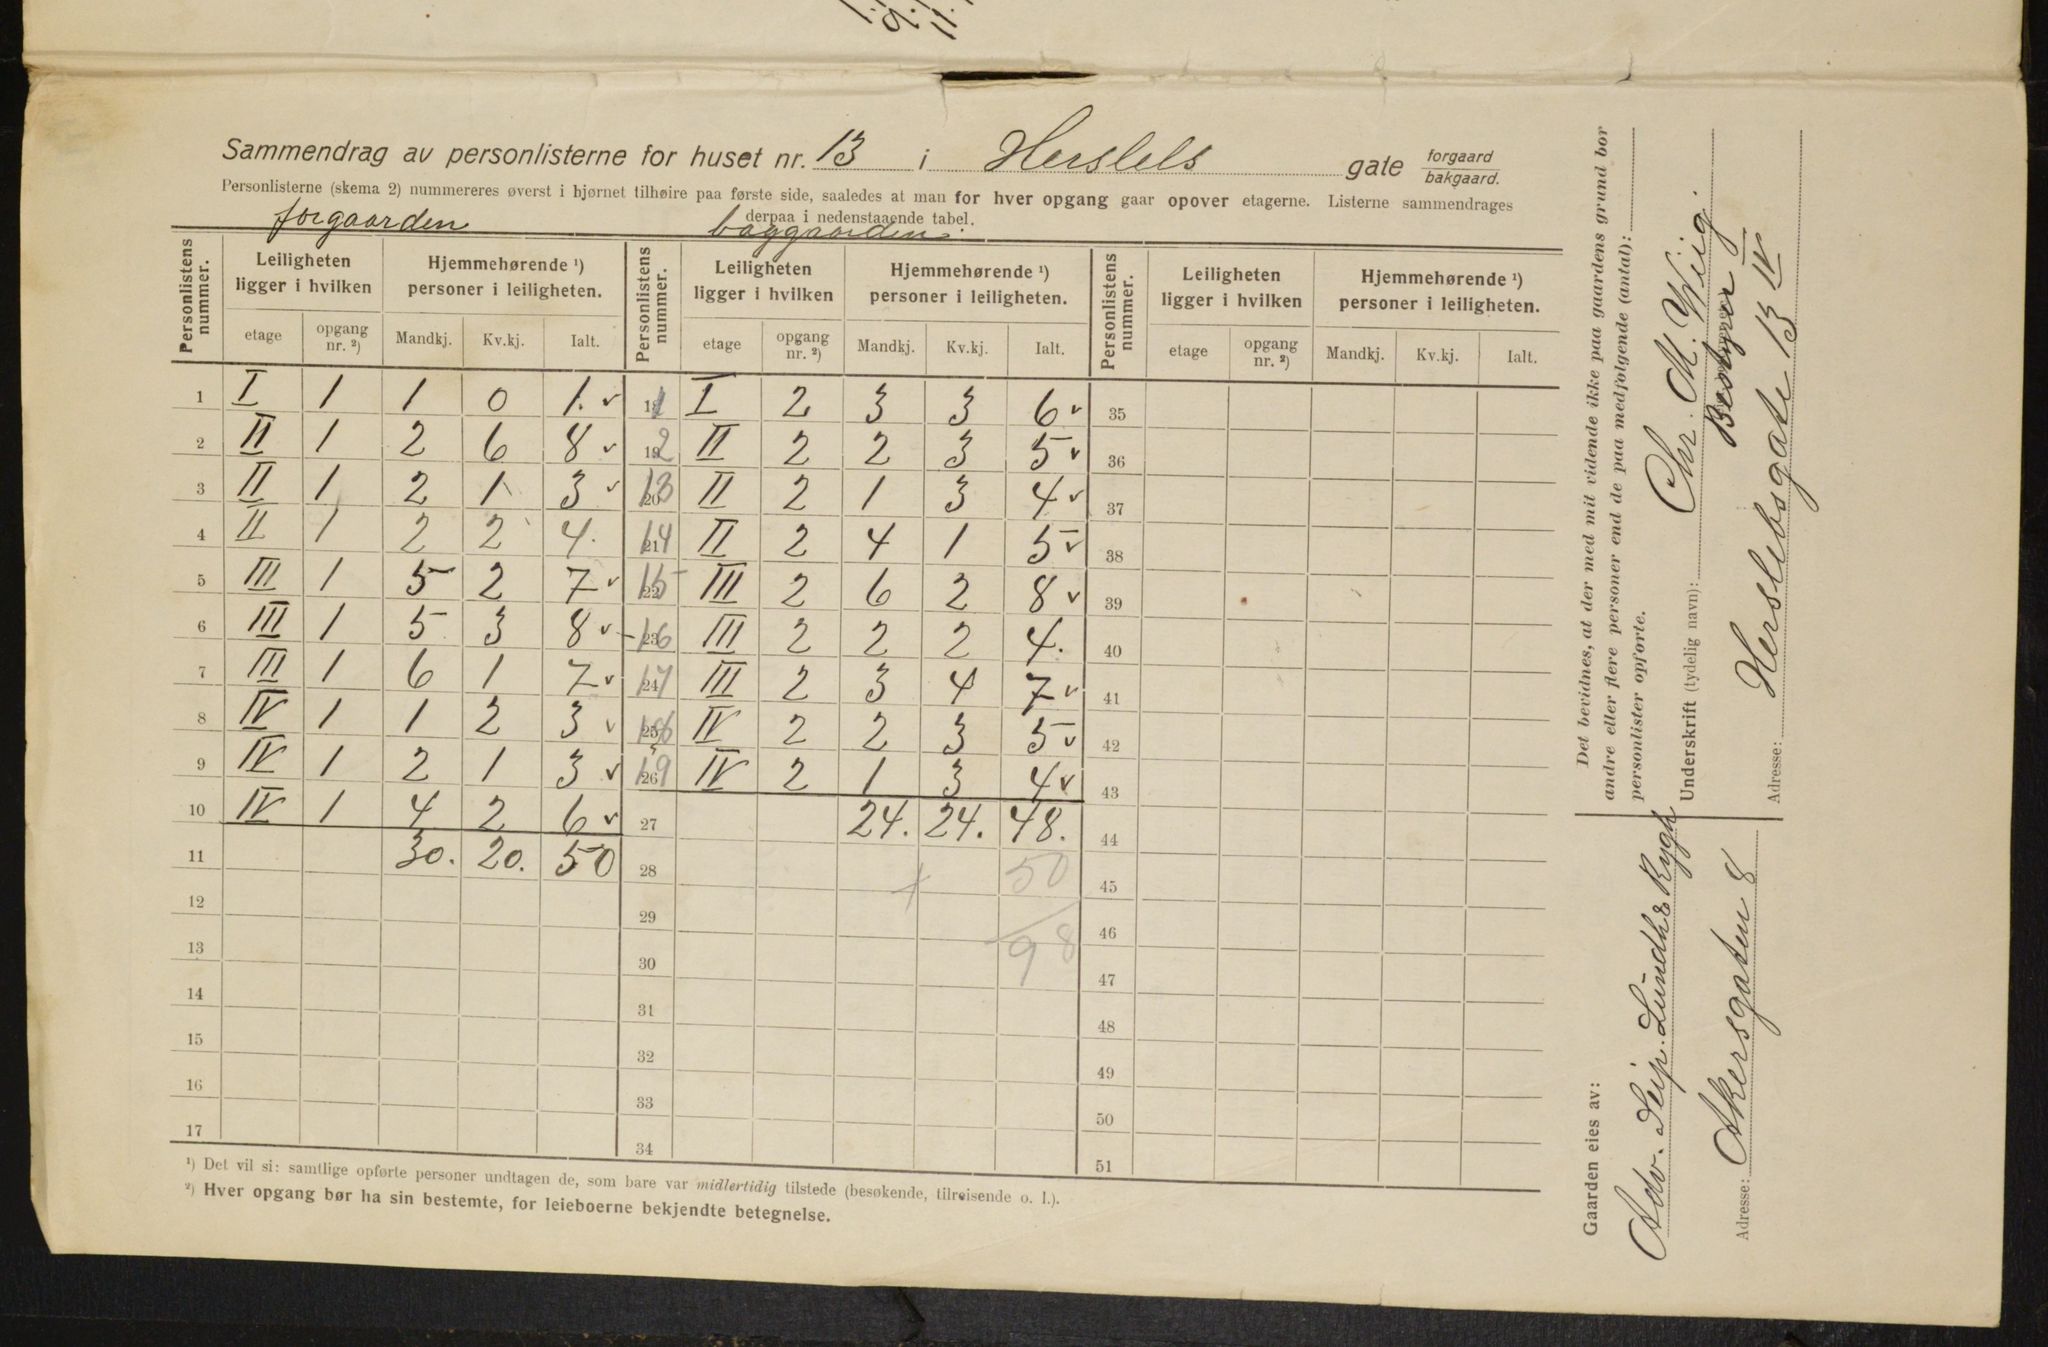 Sammendrag av personlisterne for huset nr. 13 i Herslebs gate forgaard
bakgaard.
Personlisterne (skema 2) nummereres øverst i hjørnet tilhøire paa første side, saaledes at man for hver opgang gaar opover etagerne. Listerne sammendrages
derpaa i nedenstaaende tabel.
forgaarden baggaarden.
Personlistens nummer. Leiligheten ligger i hvilken Hjemmehørende ¹) personer i leiligheten. Personlistens nummer. Leiligheten ligger i hvilken Hjemmehørende ¹) personer i leiligheten. Personlistens nummer. Leiligheten ligger i hvilken Hjemmehørende ¹) personer i leiligheten.
etage opgang nr. ²) Mandkj. Kv.kj. Ialt. etage opgang nr. ²) Mandkj. Kv.kj. Ialt. etage opgang nr. ²) Mandkj. Kv.kj. Ialt.
1 I 1 1 0 1. v 11 I 2 3 3 6 v 35
2 II 1 2 6 8 v 12 II 2 2 3 5 v 36
3 II 1 2 1 3 v 20 13 II 2 1 3 4 v 37
4 II 1 2 2 4. 21 14 II 2 4 1 5 v 38
5 III 1 5 2 7 v 22 15 III 2 6 2 8 v 39
6 III 1 5 3 8 v 23 16 III 2 2 2 4. 40
7 III 1 6 1 7 v 24 17 III 2 3 4 7 v 41
8 IV 1 1 2 3 v 25 18 IV 2 2 3 5 v 42
9 IV 1 2 1 3 v 26 19 IV 2 1 3 4 v 43
10 IV 1 4 2 6 v 27 24. 24. 48. 44
11 30. 20. 50 28 + 50 45
12 29 46
13 30 98 47
14 31 48
15 32 49
16 33 50
17 34 51
¹) Det vil si: samtlige opførte personer undtagen de, som bare var midlertidig tilstede (besøkende, tilreisende o. l.).
²) Hver opgang bør ha sin bestemte, for leieboerne bekjendte betegnelse.
Det bevidnes, at der med mit vidende ikke paa gaardens grund bor
andre eller flere personer end de paa medfølgende (antal):
personlister opførte.
Underskrift (tydelig navn): Chr. M. Wiig.
Bestyrer
Adresse: Herslebsgate 13 IV
Gaarden eies av:
Adv. Seip. Lundh & Rygh
Adresse: Akersgaten 8